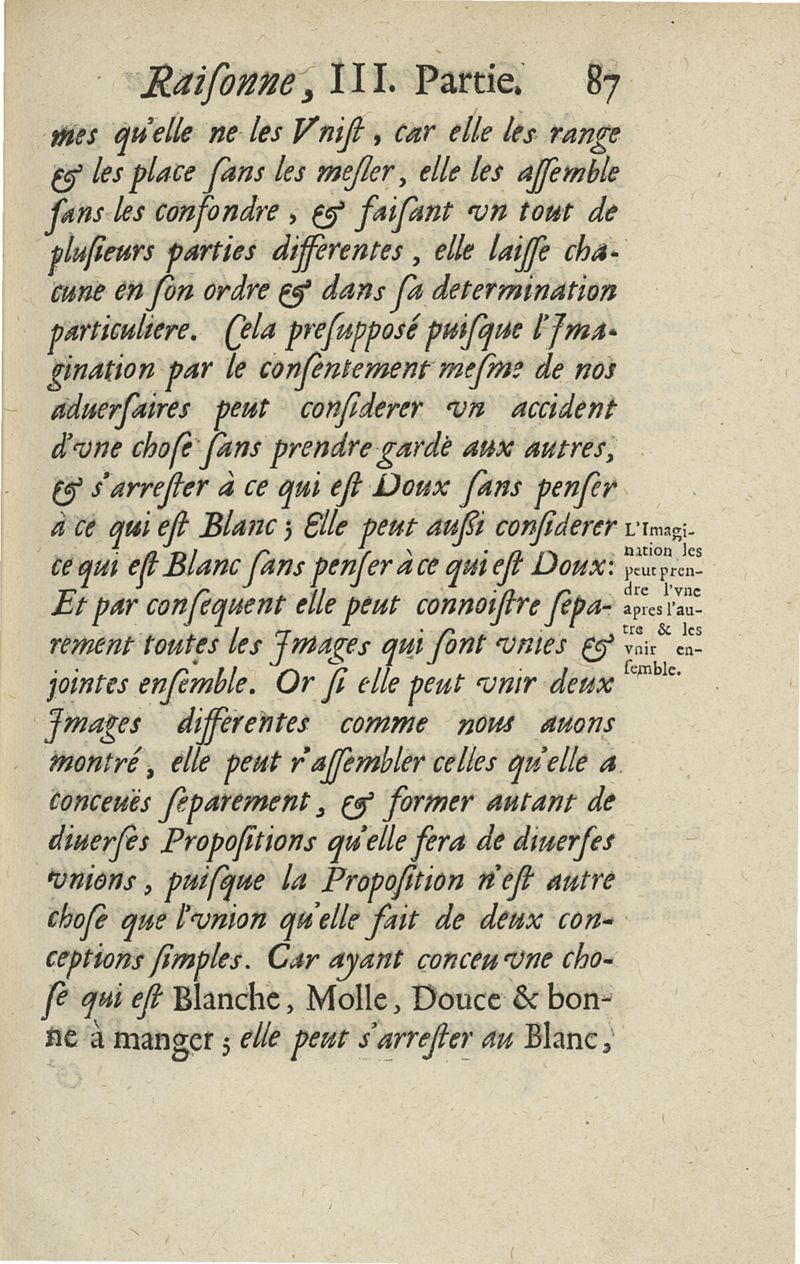 Raiſonne, III. Partie. 87
mes qu'elle ne les Vniſt, car elle les range
& les place ſans les meſler, elle les aſſemble
ſans les confondre, & faiſant vn tout de
pluſieurs parties differentes, elle laiſſe cha-
cune en ſon ordre & dans ſa determination
particuliere. Cela preſuppoſé puiſque l'Ima-
gination par le conſentement meſme de nos
aduerſaires peut conſiderer vn accident
d'vne choſe ſans prendre garde aux autres,
& s'arreſter à ce qui eſt Doux ſans penſer
à ce qui eſt Blanc; Elle peut auſſi conſiderer
ce qui eſt Blanc ſans penſer à ce qui eſt Doux:
Et par conſequent elle peut connoiſtre ſepa-
rement toutes les Images qui ſont vnies &
jointes enſemble. Or ſi elle peut vnir deux
Images differentes comme nous auons
montré, elle peut r'aſſembler celles qu'elle a
conceuës ſeparement, & former autant de
diuerſes Propoſitions qu'elle fera de diuerſes
vnions, puiſque la Propoſition n'eſt autre
choſe que l'vnion qu'elle fait de deux con-
ceptions ſimples. Car ayant conceu vne cho-
ſe qui eſt Blanche, Molle, Douce & bon-
ne à manger; elle peut s'arreſter au Blanc,
L'Imagi-
nation les
peut pren-
dre l'vne
apres l'au-
tre & les
vnir en-
ſemble.